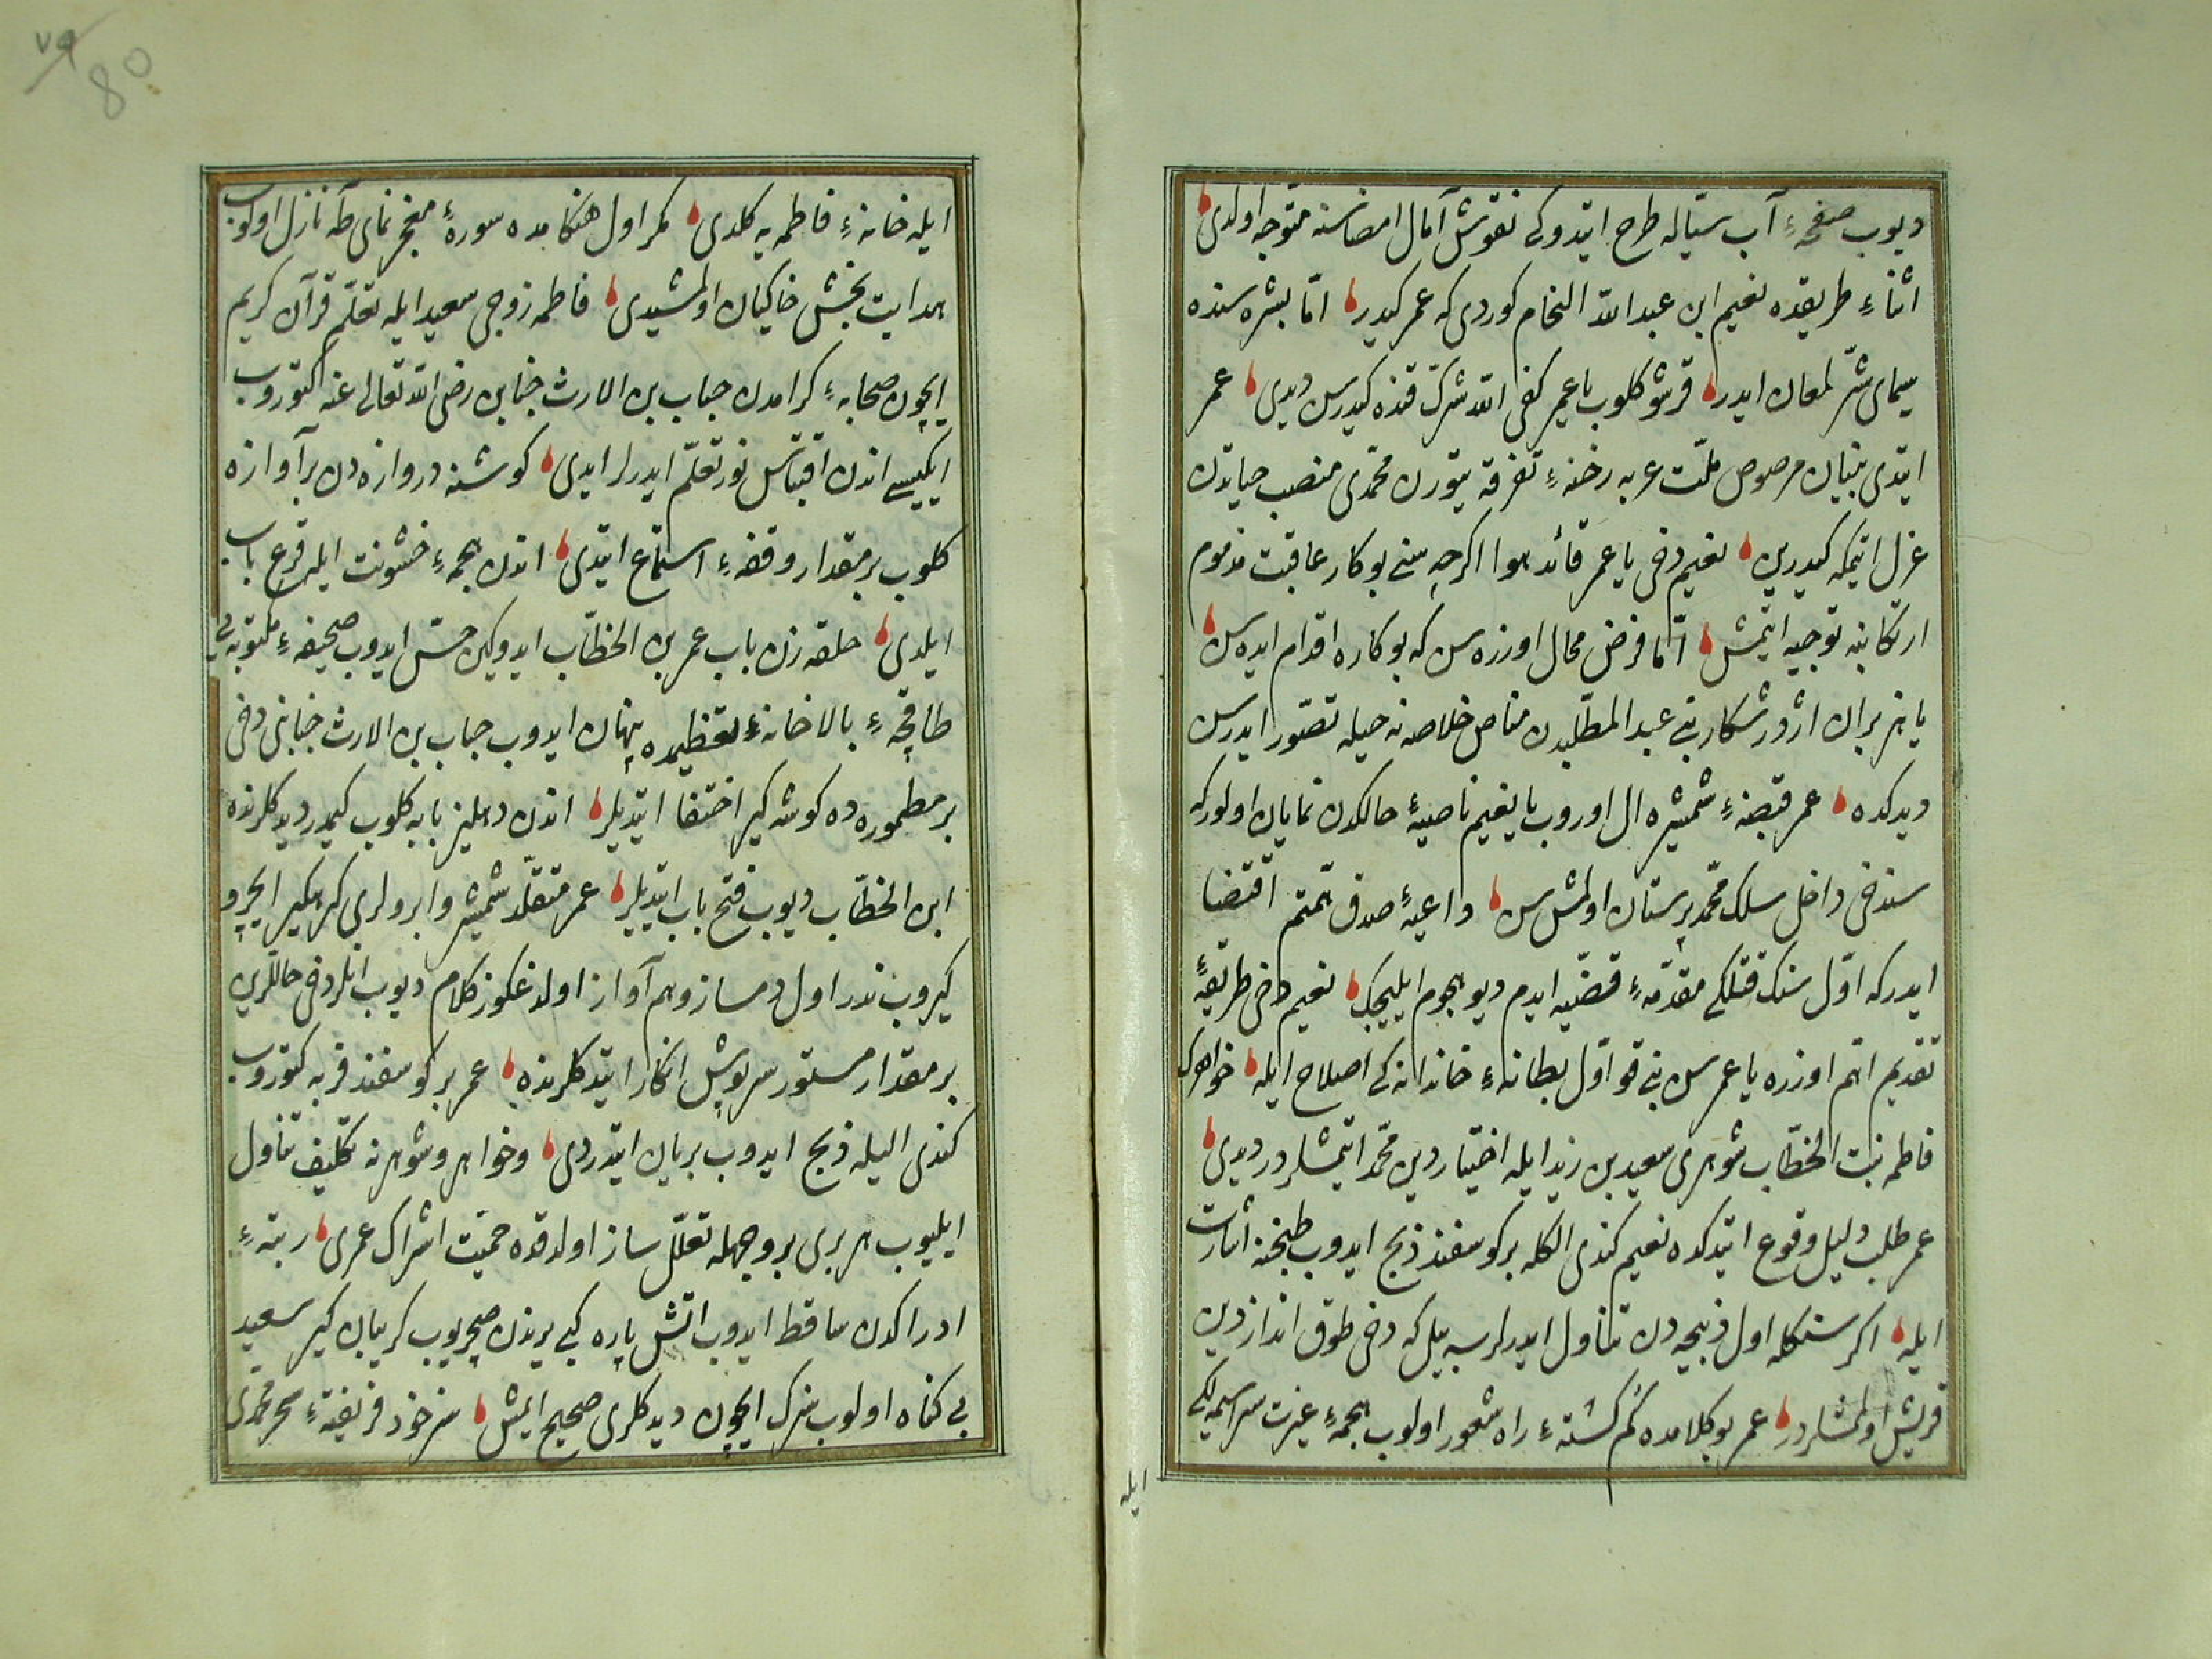 ديوب صفحهٔ آب سيّاله طرح ايتدوكى نقوش آمال امضاسنه متوجه اولدى
اثناءِ طريقده نعيم ابن عبد الله النخام كوردى كه عمر كيدر امّا بشره سنده
سيماى شرّ لمعان ايدر قرشو كلوب يا عمر كفى الله شرّك قنده كيدرسن ديدى عمر
ايتدى بنيان مرصوص ملّت عربه رخنهٔ تفرقه يتورن محمّدى منصب حياتدن
عزل ايتمكه كيدرين نعيم دخى يا عمر قائد هوا اكرچه سنى بو كار عاقبت مذموم
ارتكابنه توجيه ايتمش امّا فرض محال اوزره سن كه بو كاره اقدام ايده سن
يا هزبران اژدر شكار بنى عبد المطّلبدن مناص خلاصه نه حيله تصوّر ايدرسن
ديدكده عمر قبضهٔ شمشيره ال اوروب يا نعيم ناصيهٔ حالكدن نمايان اولور كه
سندخى داخل سلك محمّد پرستان اولمش سن داعيهٔ صدق تهمتم اقتضا
ايدر كه اوّل سنك قتلكى مقدّمهٔ قضيّه ايدم ديو هجوم ايليجك نعيم دخى طريقهٔ
تقديم اهمّ اوزره يا عمر سن بنى قو اوّل بطانهٔ خاندانه كى اصلاح ايله خواهرك
فاطمه بنت الخطّاب شوهرى سعيد بن زيد ايله اختيار دين محمّد ايتمشلردر ديدى
عمر طلب دليل وقوع ايتدكده نعيم كندى الكله بر كوسفند ذبح ايدوب طبخنه اشارت
ايله اكر سنكله اول ذبيحه دن تناول ايدرلرسه بيل كه دخى طوق انداز دين
قريش اولمشلردر عمر بو كلامده كم كشتهٔ راه شعور اولوب هجمهٔ غيرت سراسيمه لكى
ايله
٧٩
80
ايله خانهٔ فاطمه يه كلدى مكر اول هنكامده سورهٔ معجز نماى طه نازل اولوب
هدايت بخش خاكيان اولمشيدى فاطمه زوجى سعيد ايله تعلّم قرآن كريم
ايچون صحابهٔ كرامدن خباب بن الارث جنابن رضى الله تعالى عنه كتوروب
ايكيسى اندن اقتباس نور تعلّم ايدرلر ايدى كوشنه دروازه دن بر آوازه
كلوب بر مقدار وقفهٔ استماع ايتدى اندن هجمهٔ خشونت ايله قرع باب
ايلدى حلقه زن باب عمر بن الخطّاب ايدوكين حسّ ايدوب صحيفهٔ مكتوبه يى
طاقچهٔ بالا خانهٔ تعظيمده پنهان ايدوب خباب بن الارث جنابنى دخى
بر مطموره ده كوشه كير اختفا ايتديلر اندن دهليز بابه كلوب كيمدر ديدكلرنده
ابن الخطّاب ديوب فتح باب ايتديلر عمر متقلّد شمشير و ابرولرى كرهكير ايچرو
كيروب ندر اول دمساز و هم آواز اولدغكوز كلام ديوب انلر دخى حاللرين
بر مقدار مستور سرپوش انكار ايتدكلرنده عمر بر كوسفند فربه كتوروب
كندى اليله ذبح ايدوب بريان ايتدردى و خواهر و شوهرنه تكليف تناول
ايليوب هر برى بر وجهله تعلّل ساز اولدقده حميّت اشراك عمرى رتبهٔ
ادراكدن ساقط ايدوب اتش پاره كبى يرندن صچريوب كريبان كير سعيد
بى كناه اولوب سزك ايچون ديدكلرى صحيح ايمش سز خود فريفتهٔ سحر محمّدى